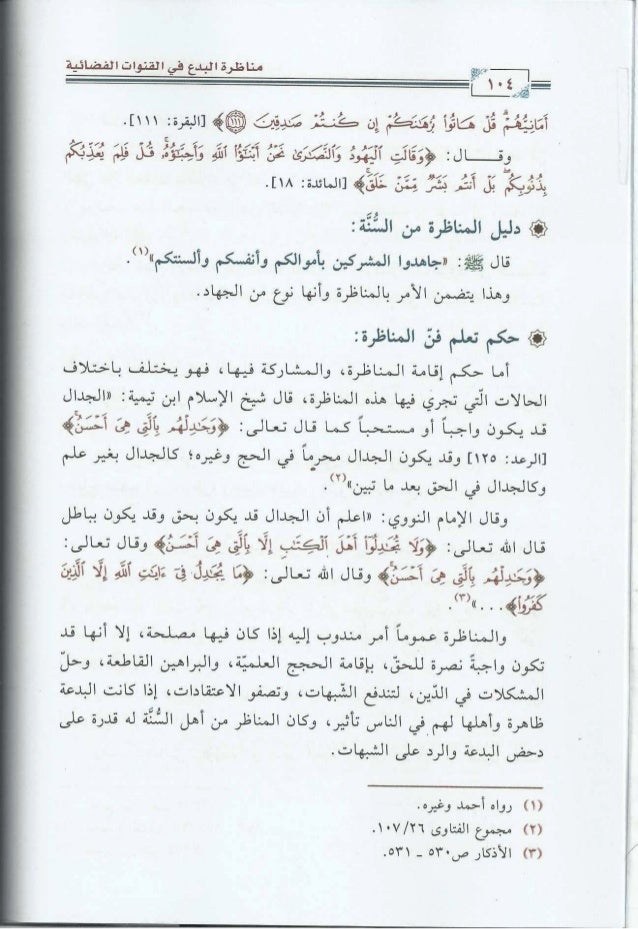 مناظرة البدع في القنوات الفضائية
١٠٤
أَمَانِيُّهُمْ قُلْ هَاتُوا بُرْهَانَكُمْ إِن كُنتُمْ صَادِقِينَ ﴿١١١﴾﴾ [البقرة: ١١١].
وقـــال: ﴿وَقَالَتِ الْيَهُودُ وَالنَّصَارَىٰ نَحْنُ أَبْنَاءُ اللَّهِ وَأَحِبَّاؤُهُ قُلْ فَلِمَ يُعَذِّبُكُم
بِذُنُوبِكُم بَلْ أَنتُم بَشَرٌ مِّمَّنْ خَلَقَ﴾ [المائدة: ١٨].
دليل المناظرة من السُّنَّة:
قال ﷺ: «جاهدوا المشركين بأموالكم وأنفسكم وألسنتكم»(١).
وهذا يتضمن الأمر بالمناظرة وأنها نوع من الجهاد.
حكم تعلم فنّ المناظرة:
أما حكم إقامة المناظرة، والمشاركة فيها، فهو يختلف باختلاف
الحالات الّتي تجري فيها هذه المناظرة، قال شيخ الإسلام ابن تيمية: «الجدال
قد يكون واجباً أو مستحباً كما قال تعالى: ﴿وَجَادِلْهُم بِالَّتِي هِيَ أَحْسَنُ﴾
[الرعد: ١٢٥] وقد يكون الجدال محرماً في الحج وغيره؛ كالجدال بغير علم
وكالجدال في الحق بعد ما تبين»(٢).
وقال الإمام النووي: «اعلم أن الجدال قد يكون بحق وقد يكون بباطل
قال الله تعالى: ﴿وَلَا تُجَادِلُوا أَهْلَ الْكِتَابِ إِلَّا بِالَّتِي هِيَ أَحْسَنُ﴾ وقال تعالى:
﴿وَجَادِلْهُم بِالَّتِي هِيَ أَحْسَنُ﴾ وقال الله تعالى: ﴿مَا يُجَادِلُ فِي آيَاتِ اللَّهِ إِلَّا الَّذِينَ
كَفَرُوا﴾...»(٣).
والمناظرة عموماً أمر مندوب إليه إذا كان فيها مصلحة، إلا أنها قد
تكون واجبةً نصرة للحقّ، بإقامة الحجج العلميّة، والبراهين القاطعة، وحلّ
المشكلات في الدّين، لتندفع الشّبهات، وتصفو الاعتقادات، إذا كانت البدعة
ظاهرة وأهلها لهم في الناس تأثير، وكان المناظر من أهل السُّنَّة له قدرة على
دحض البدعة والرد على الشبهات.
(١) رواه أحمد وغيره.
(٢) مجموع الفتاوى ١٠٧/٢٦.
(٣) الأذكار ص٥٣٠ - ٥٣١.